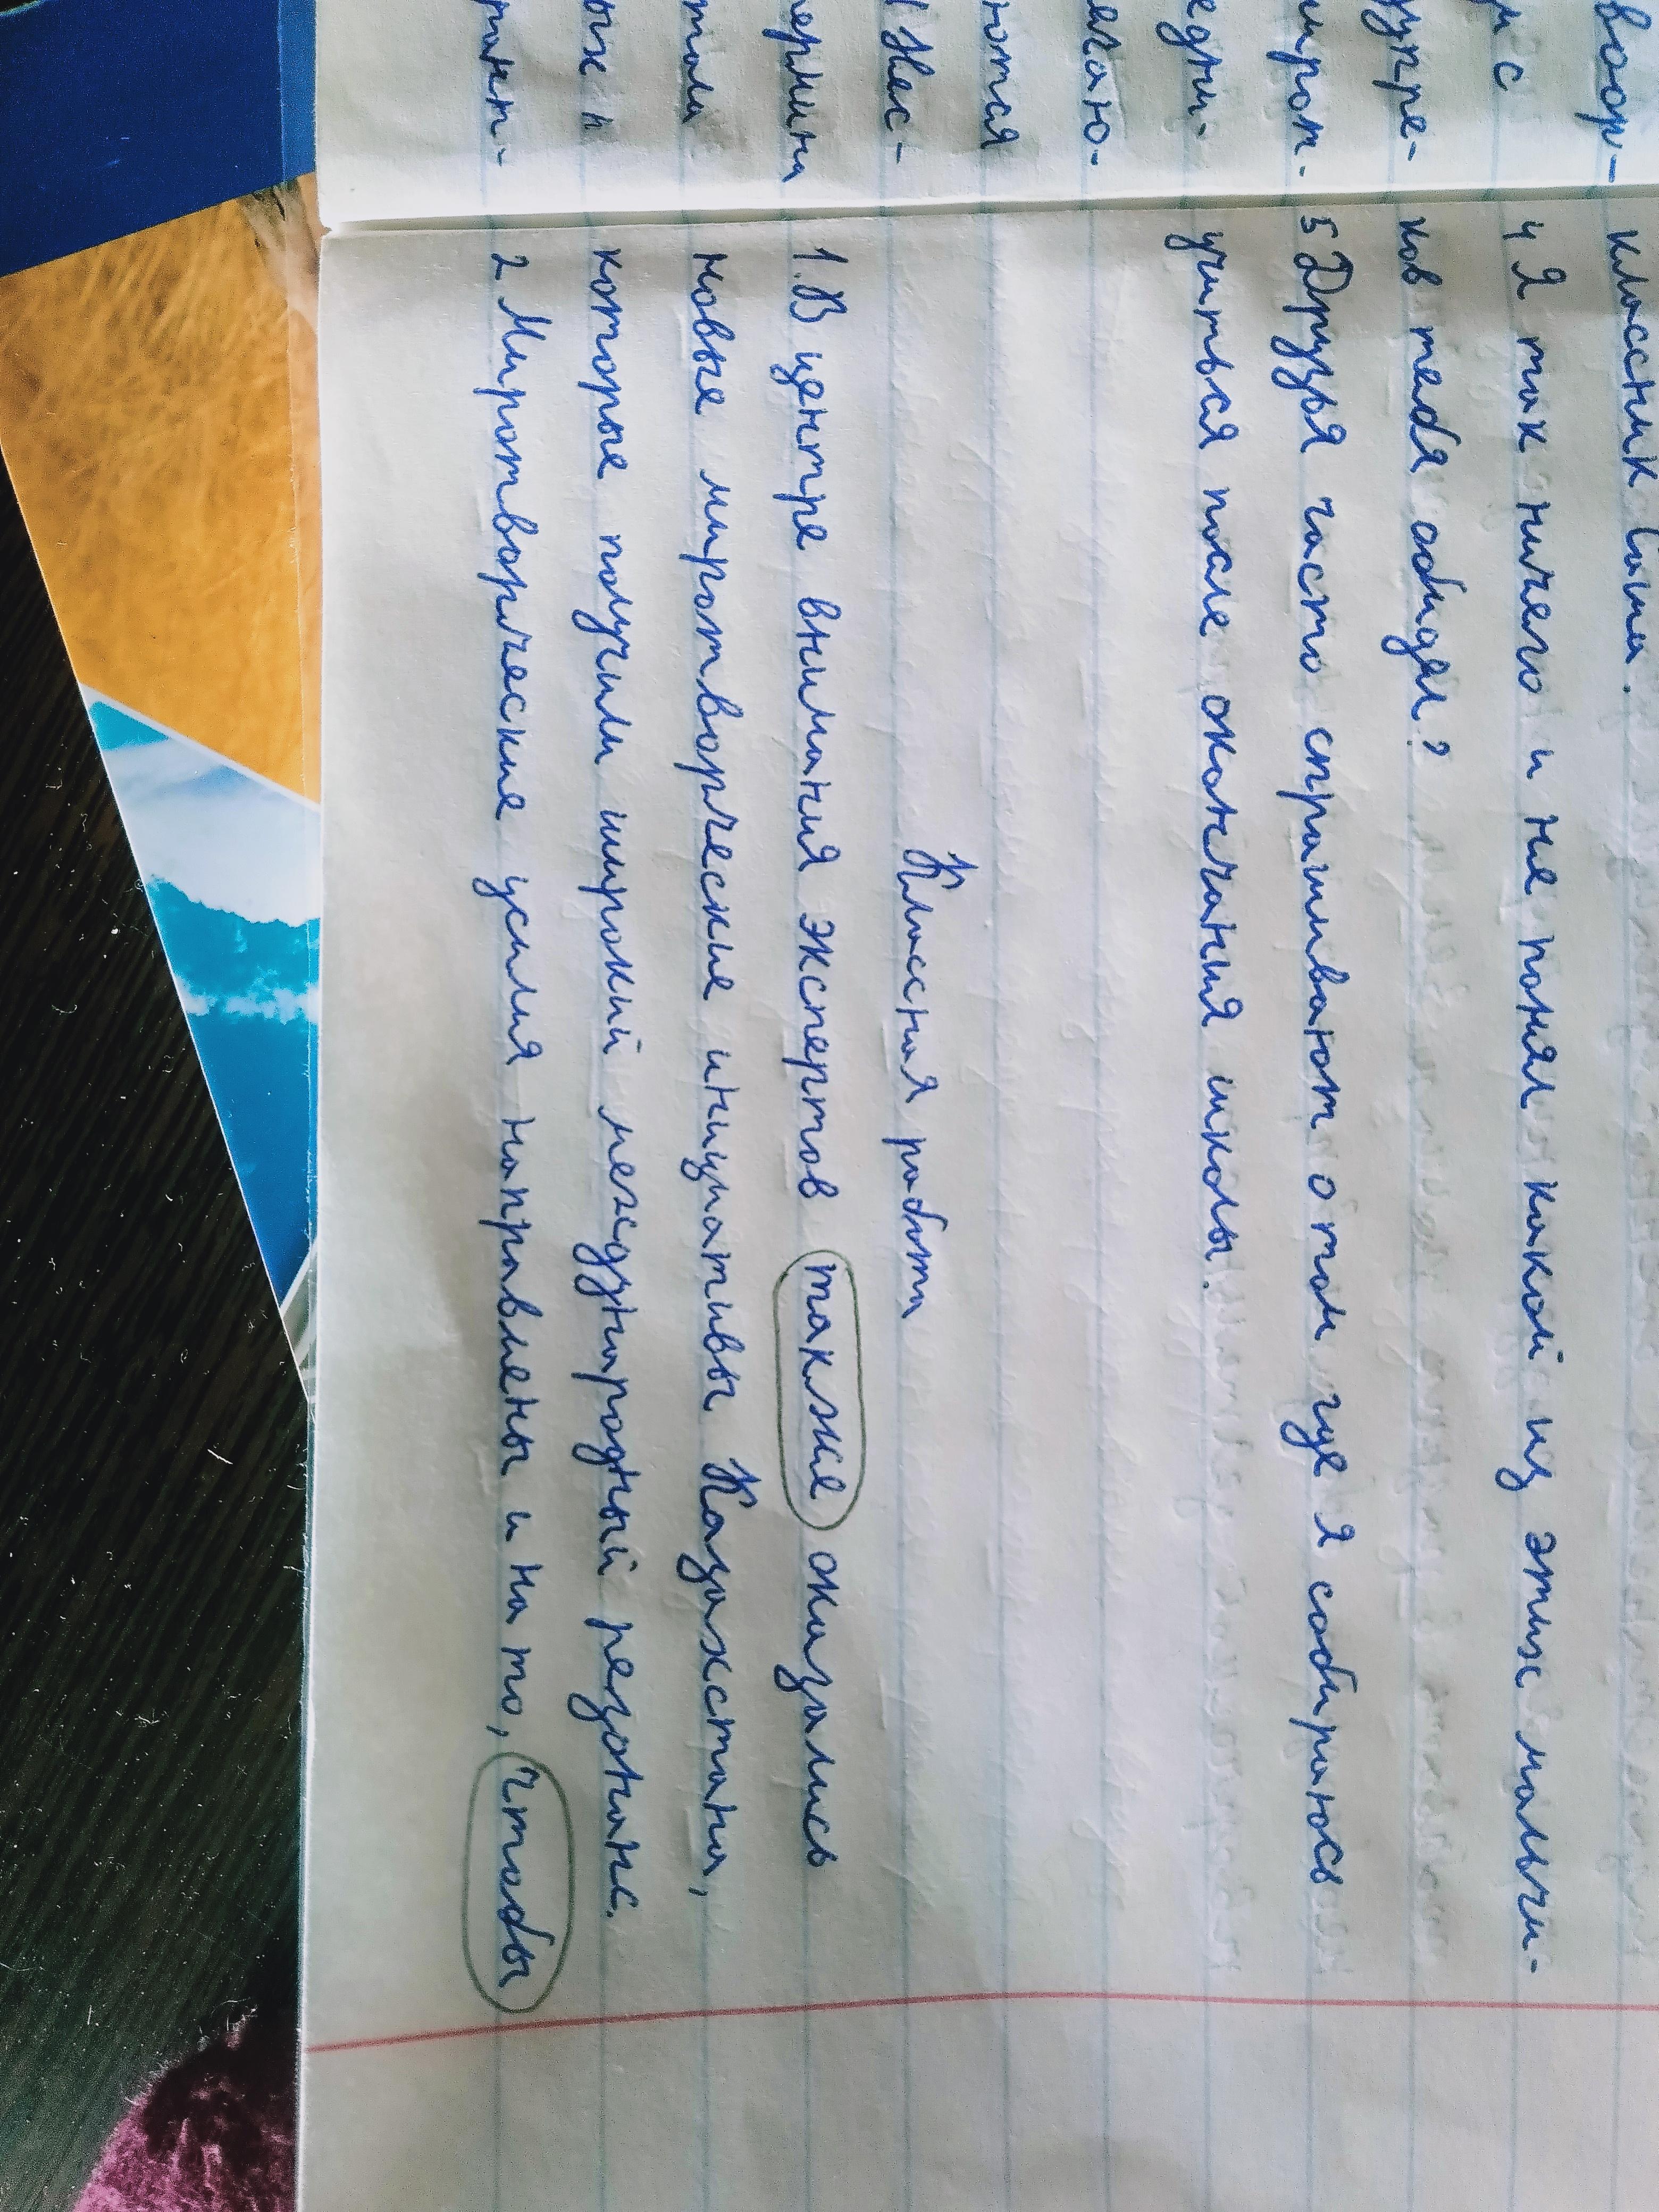 классник Саша.
4 Я так ничего и не понял какой из этих мальчи-
ков тебя обидел?
5 Друзья часто спрашивают о том где я собираюсь
учиться после окончания школы.
Классная работа
1. В центре внимания экспертов также оказались
новые миротворческие инициативы Казахстана,
которые получили широкий международный резонанс.
2. Миротворческие усилия направлены и на то, чтобы